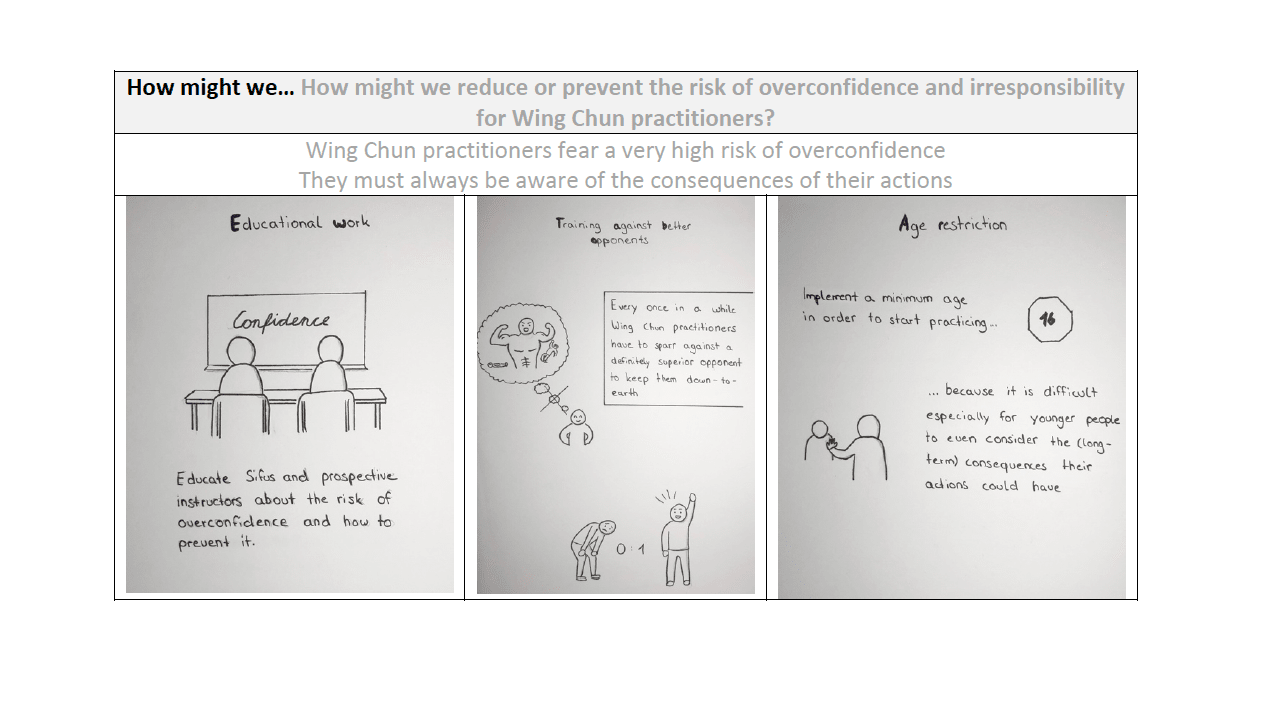 How might we... How might we reduce or prevent the risk of overconfidence and irresponsibility
for Wing Chun practitioners?
Wing Chun practitioners fear a very high risk of overconfidence
They must always be aware of the consequences of their actions
Educational work
Confidence
Educate Sifus and prospective
instructors about the risk of
overconfidence and how to
prevent it.
Training against better
opponents
Every once in a while
Wing Chun practitioners
have to sparr against a
definitely superior opponent
to keep them down-to-
earth
0:1
Age restriction
Implement a minimum age
in order to start practicing...
16
... because it is difficult
especially for younger people
to even consider the (long-
term) consequences their
actions could have